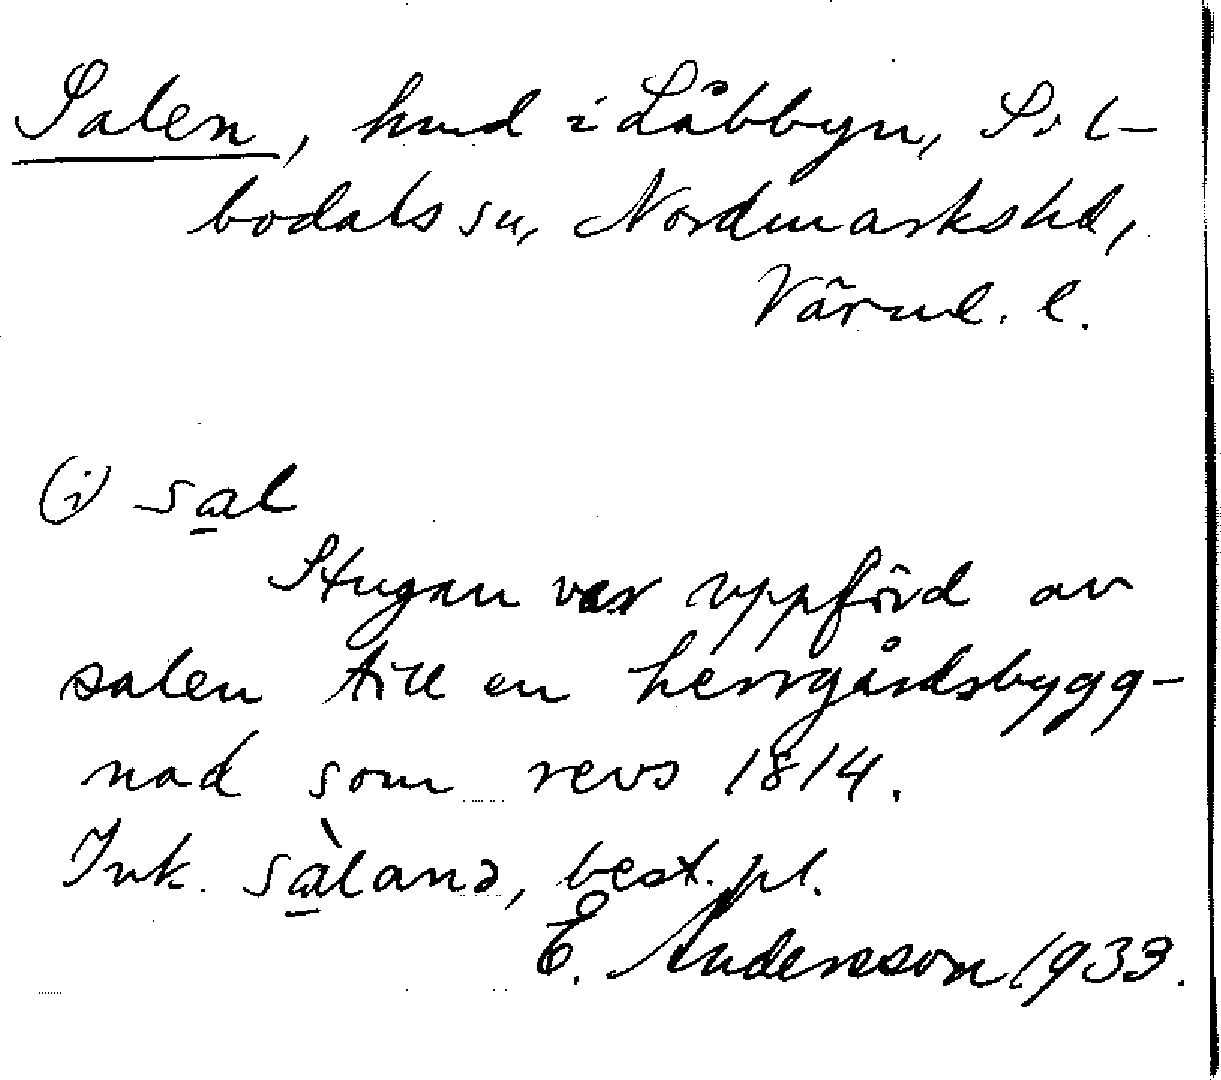 Salen, hmd i Låbbyn, Sil-
bodals sn, Nordmarkshd,
Värml. l.
(i) sa̱l
Stugan var uppförd av
salen till en herrgårdsbygg-
nad som revs 1814.
Ink. sà̱lanə, best. pl.
E. Andersson 1933.